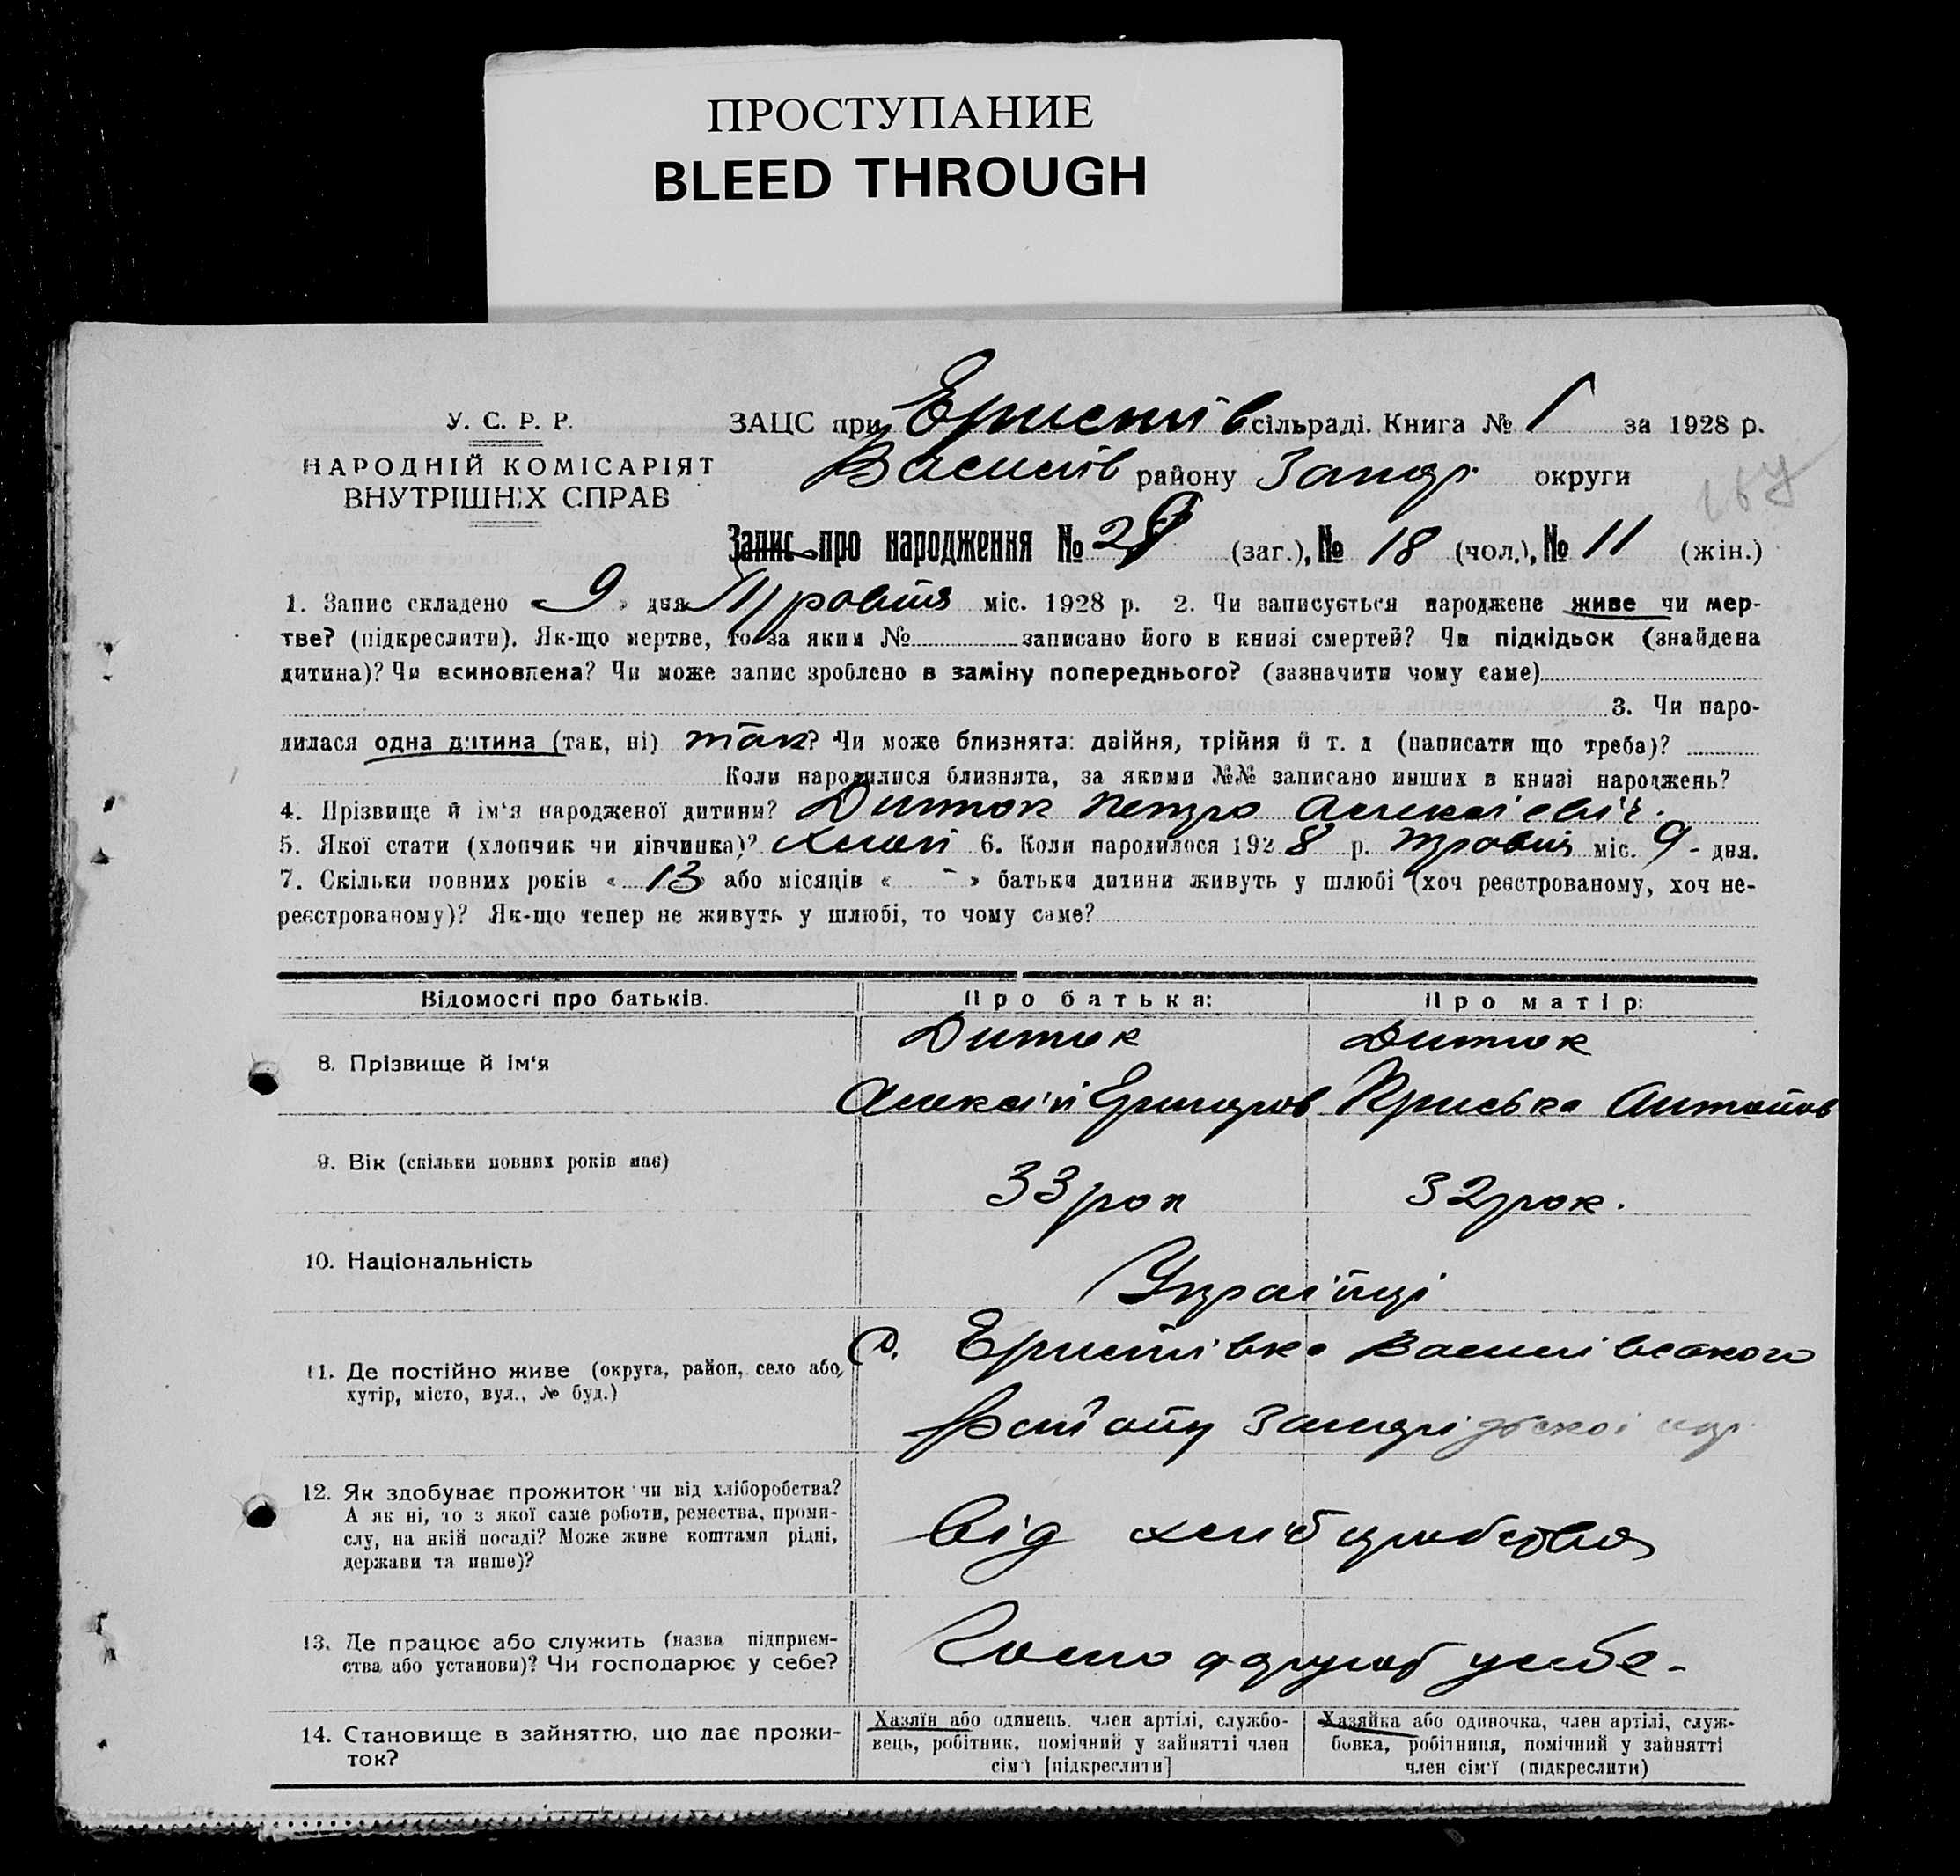 ПРОСТУПАНИЕ
BLEED THROUGH
У. С. Р. Р.
НАРОДНІЙ КОМІСАРІЯТ
ВНУТРІШНІХ СПРАВ
ЗАЦС при Еристів сільраді. Книга № 1 за 1928 р.
Василів району Запор округи
Запис про народження № 29 (заг.), № 18 (чол.), № 11 (жін.)
1. Запис складено « 9 » дня Травня міс. 1928 р. 2. Чи записується народжене живе чи мер-
тве? (підкреслити). Як-що мертве, то за яким № записано його в книзі смертей? Чи підкідьок (знайдена
дитина)? Чи всиновлена? Чи може запис зроблено в заміну попереднього? (зазначити чому саме)
3. Чи наро-
дилася одна дитина (так, ні) так? Чи може близнята: двійня, трійня й т. д (написати що треба)?
Коли народилися близнята, за якими №№ записано инших в книзі народжень?
4. Прізвище й ім'я народженої дитини? Дитюк Петро Алексієвіч.
5. Якої статі (хлопчик чи дівчинка)? Хлоп 6. Коли народилося 1928 р. травня міс. 9 - дня.
7. Скільки повних років « 13 » або місяців « - » батьки дитини живуть у шлюбі (хоч реєстрованому, хоч не-
реєстрованому)? Як-що тепер не живуть у шлюбі, то чому саме?
Відомості про батьків. Про батька: Про матір:
8. Прізвище й ім'я
Дитюк Дитюк
Алексій Григоров Приська Антонов
9. Вік (скільки повних років має)
33 рок 32 рок.
10. Національність
Українці
11. Де постійно живе (округа, район, село або,
хутір, місто, вул., № буд.)
С. Еристівка Василівського
району Запорі
12. Як здобуває прожиток чи від хліборобства?
А як ні, то з якої саме роботи, ремества, проми-
слу, на якій посаді? Може живе коштами рідні,
держави та инше)?
від хліборобства
13. Де працює або служить (назва підприєм-
ства або установи)? Чи господарює у себе?
14. Становище в зайняттю, що дає прожи-
ток?
Хазяїн або одинець, член артілі, службо-
вець, робітник, помічний у зайнятті член
сім'ї [підкреслити]
Хазяйка або одиночка, член артілі, служ-
бовка, робітниця, помічний у зайнятті
член сім'ї (підкреслити)